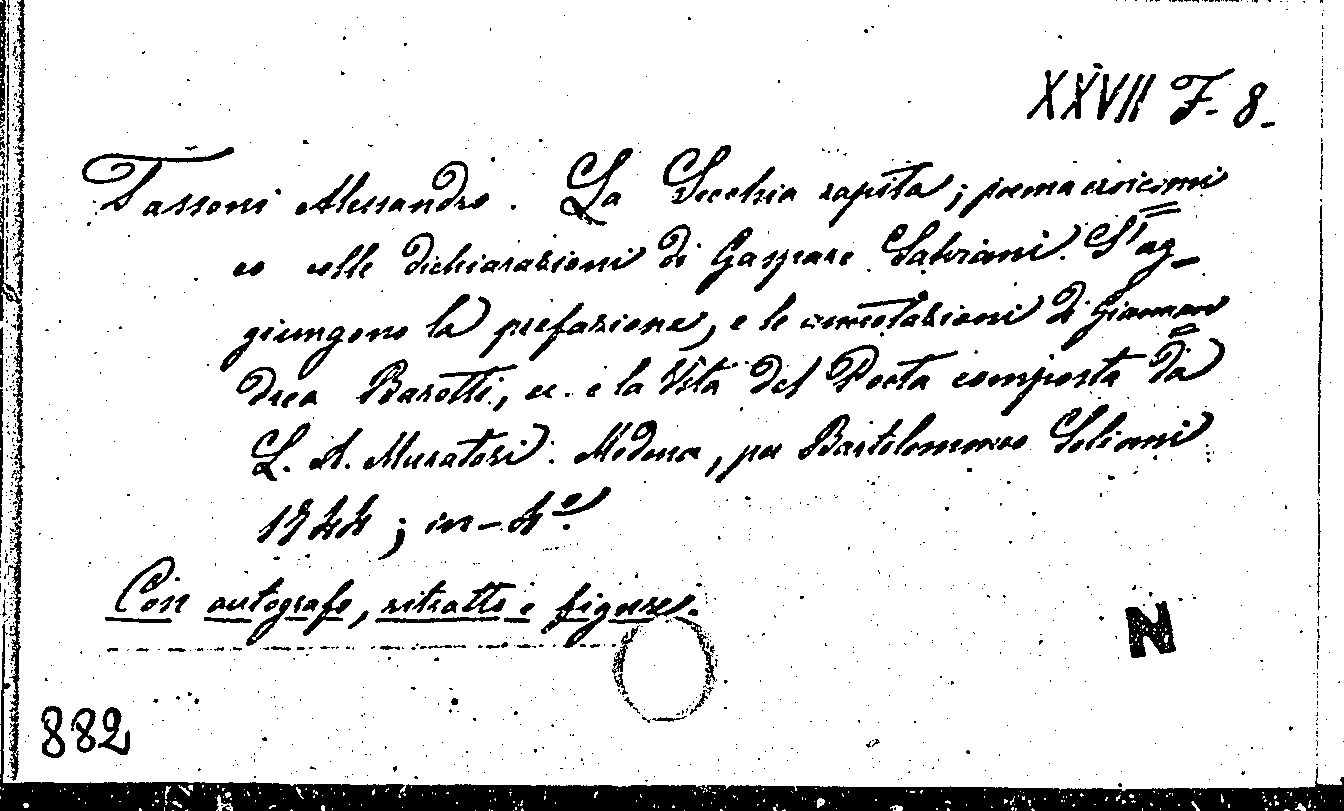 XXVII F. 8.
Tassoni Alessandro. La Secchia rapita; poema eroicomi=
co colle dichiarazioni di Gaspare Salviani. S'ag-
giungono la prefazione, e le annotazioni di Giannan=
drea Barotti, ec. e la Vita del Poeta composta da
L. A. Muratori. Modena, per Bartolomeo Soliani
1744; in-4º.
Con autografo, ritratto e figure.
N
882